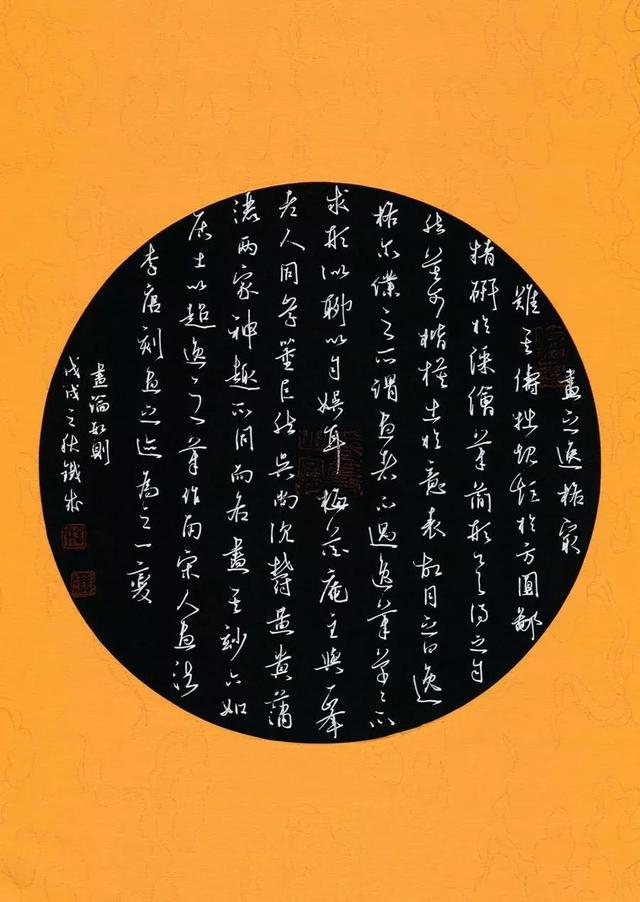 畫之逸格最
難其儔拙規矩於方圓鄙
精研於彩繪筆簡形具得之自
然莫可楷模出於意表故目之曰逸
格尔僕之所謂畫者不過逸筆草々不
求形似聊以自娛耳梅花庵主與一峯
老人同學董巨然吳尚沈鬱黃貴瀟
灑兩家神趣不同而各盡其妙六如
居士以超逸之筆作南宋人畫法
李唐刻畫之跡為之一變
畫論數則
戊戌之秋鐵